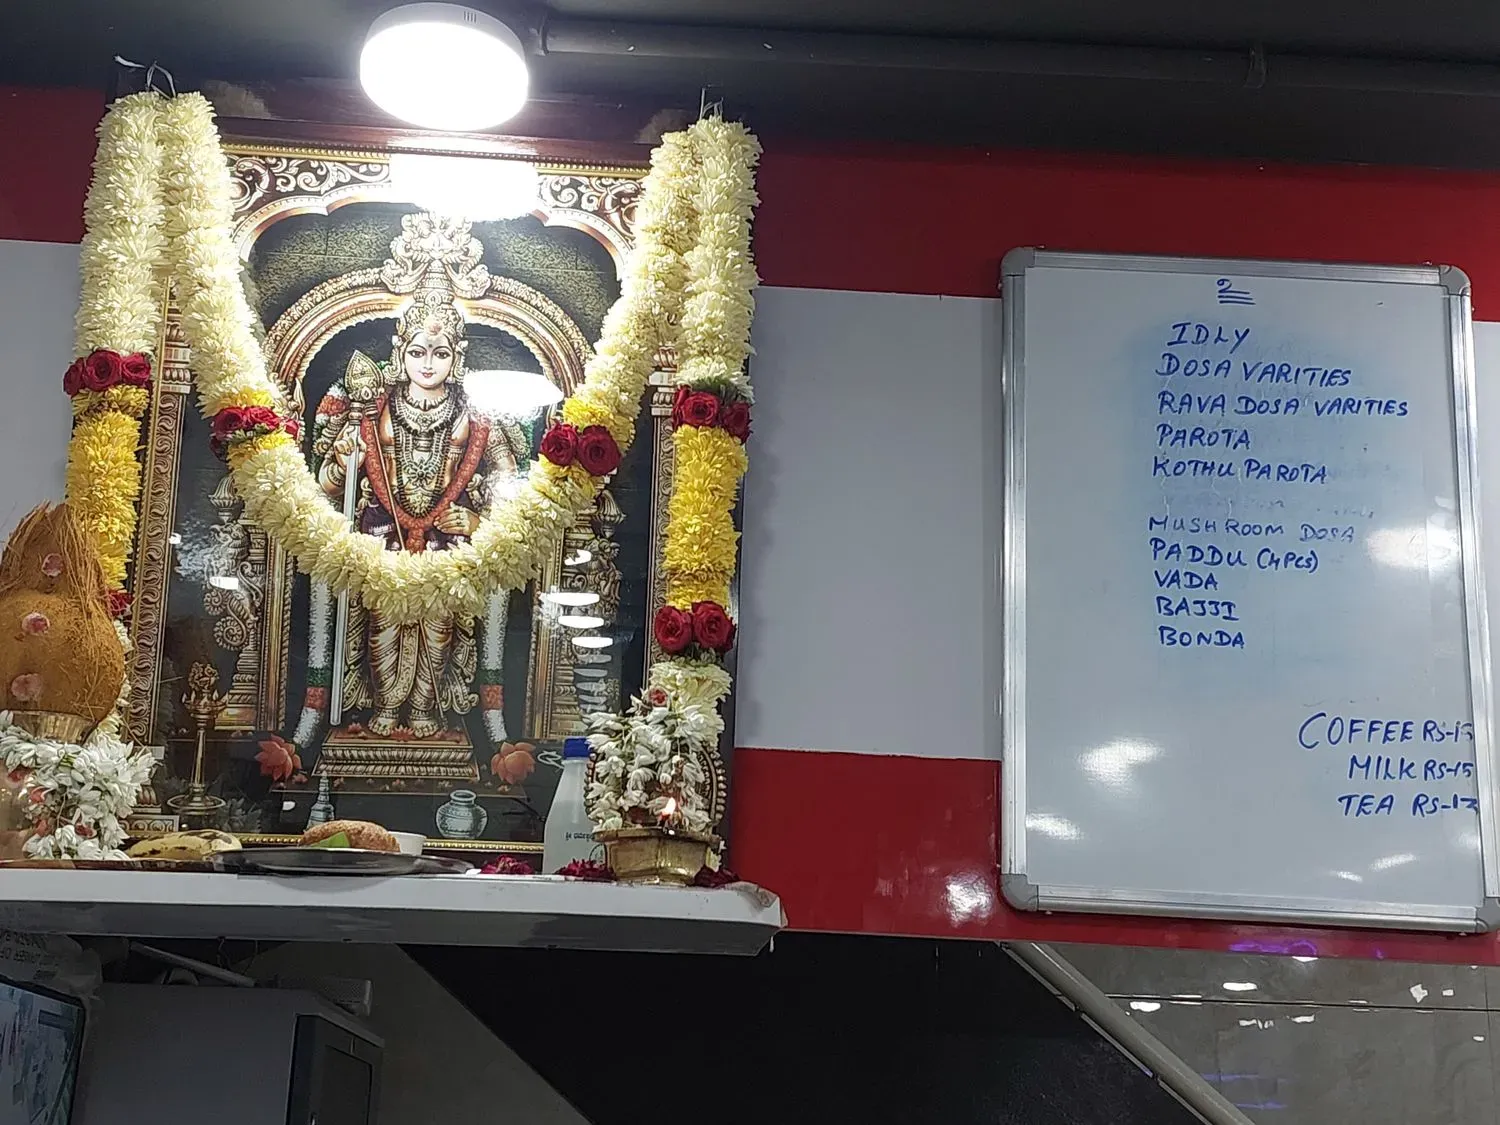 IDLY
DOSA VARITIES
RAVA DOSA VARITIES
PAROTA
KOTHU PAROTA
MUSHROOM DOSA
PADDU (4 Pcs)
VADA
BAJJI
BONDA
COFFEE RS-15
MILK RS-15
TEA RS-12